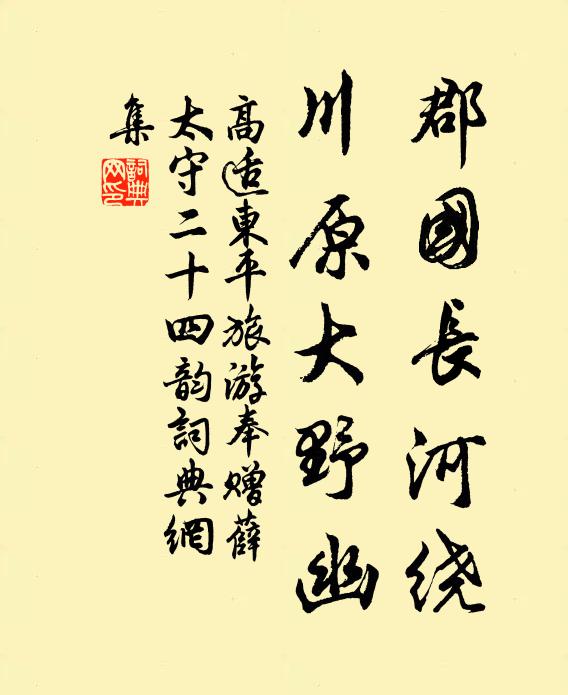 郡國長河绕
川原大野幽
高适東平旅游奉赠薛
太守二十四韵詞典網
集
詞典網印